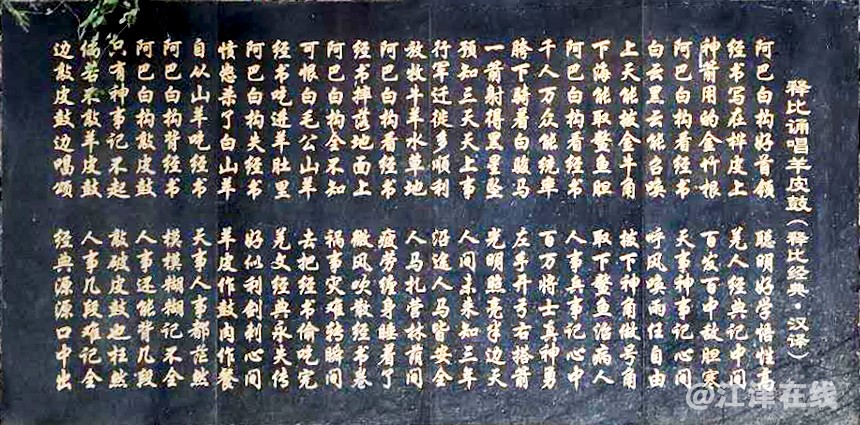 释比诵唱羊皮鼓(释比经典·汉译)
阿巴白构好首领 聪明好学悟性高
经书写在桦皮上 羌人经典记中间
神箭用的金竹根 百发百中敌胆寒
阿巴白构看经书 天事神事记心间
白云黑云能召唤 呼风唤雨任自由
上天能金斗角 下神角做号角
下海能取鳖鱼胆 取下鳖鱼治病人
阿巴白构看经书 人事真事记心中
千人万众能统率 百万将士真神勇
胯下骑着白骏马 左手开弓右搭箭
一箭射得黑星坠 光明照亮半边天
预知三天天上事 人间未来知三年
行军迁徙多顺利 沿途人马皆安全
放牧牛羊水草地 人马扎营林荫间
阿巴白构看经书 疲劳缠身睡着了
经书摔落地面上 微风吹散经书卷
阿巴白构全不知 祸事灾难转瞬间
可恨白毛公山羊 去把经书偷吃完
经书吃进羊肚里 羌文经典永失传
阿巴白构失经书 好似利剑刺心间
愤怒杀了白山羊 羊皮作鼓肉作餐
自从山羊吃经书 天事人事都茫然
阿巴白构背经书 模模糊糊记不全
阿巴白构敲皮鼓 人事还能背几段
只有神事记不起 敲破皮鼓也枉然
倘若不敲羊皮鼓 人事几段难记全
边敲皮鼓边唱颂 经典源源口中出
@江津在线